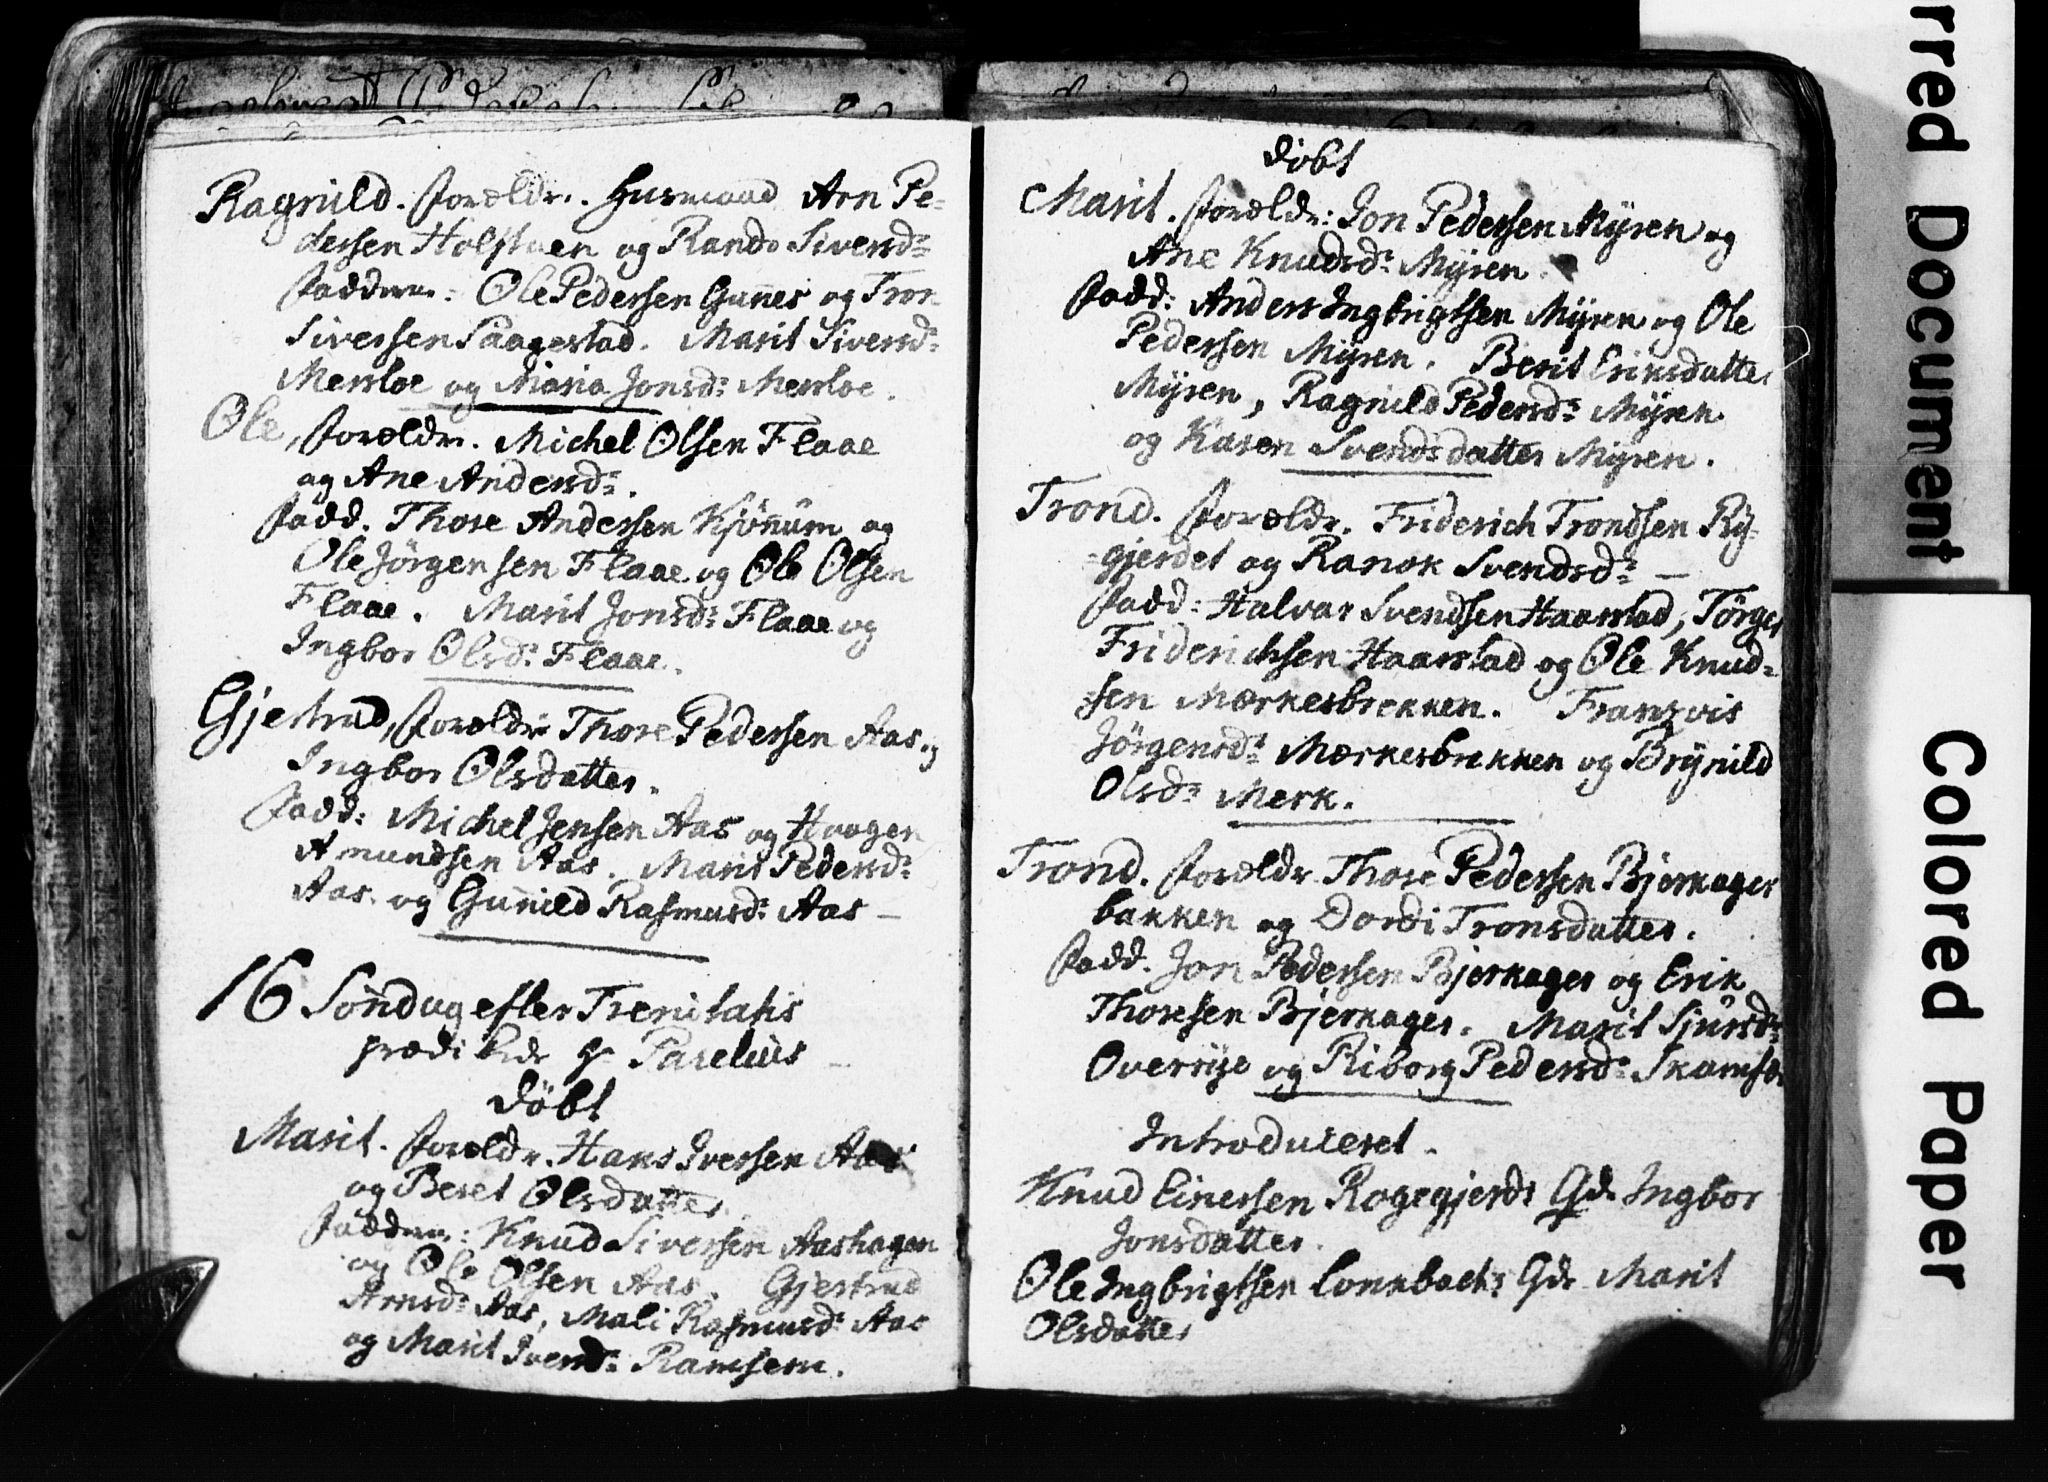 Ragnild. forældr. Husmand Arn Pe-
dersen Holstuen og Rando Siversd:
fadderne: Ole Pedersen Gunnes og Tron
Siversen Saagestad. Marit Siversd:
Mersloe og Maria Jonsd: Mersloe.
Ole, forældre. Michel Olsen Flaae
og Ane Andersd:
fadd. Thore Andersen Kjönnum og
Ole Jörgensen Flaae og Ole Olsen
Flaae. Marit Jonsd: Flaae og
Ingbor Olsd: Flaae.
Gjertrud, forældr Thore Pedersen Aas og
Ingbor Olsdatter.
fadd: Michel Jensen Aas og Haagen
Amundsen Aas. Marit Pedersd:
Aas. og Gunnild Rasmusd: Aas —
16 Söndag efter Trenitatis
prædikede Hr Parelius —
döbt
Marit. forældr. Hans Iversen Aas
og Beret Olsdatter.
fadderne: Knud Siversen Aashagen
og Ole Olsen Aas. Gjertrud
Arnsd: Aas, Mali Rasmusd: Aas
og Marit Svend: Ramsem.
döbt
Marit. forældr: Jon Pedersen Myren og
Ane Knudsd: Myren.
fadd: Anders Ingbrigtsen Myren og Ole
Pedersen Myren. Berit Eriksdatter
Myren, Ragnild Pedersd: Myren
og Karen Svendsdatter Myren.
Trond. forældr. Friderich Trondsen Ry-
-gjerdet og Ranok Svendsd: —
fadd: Halvar Svendsen Haarstad, Törger
Friderichsen Haarstad og Ole Knud-
-sen Mærkesbrekken. Franzvis
Jörgensd: Mærkesbrekken og Brynild
Olsd: Merk.
Trond. forældr. Thore Pedersen Bjerkager
bakken og Dordi Tronsdatter.
fadd. Jon Pedersen Bjerkager og Erik
Thoresen Bjerkager. Marit Sjursd:
Overrye og Riborg Pedersd: Skamfer
Introduceret.
Knud Einersen Rogegjerds Gde Ingbor
Jonsdatter.
Ole Ingbrigtsen Lonkbachs Gde Marit
Olsdatter
rred Document
Colored Paper